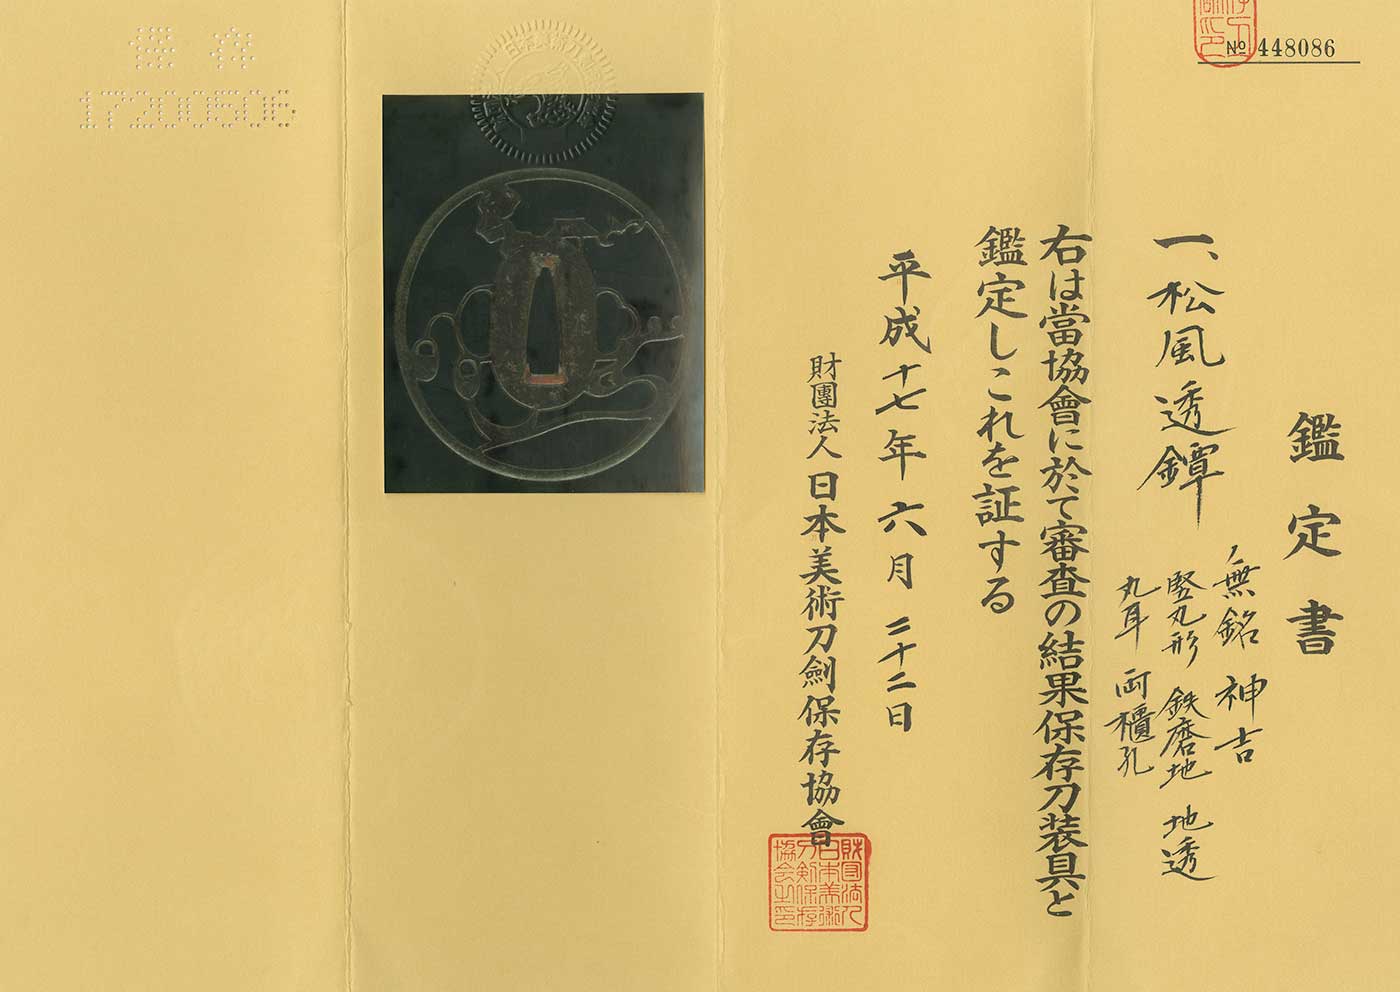 No 448086
鑑定書
一、松風透鐔
無銘 神吉
竪丸形 鉄磨地 地透
丸耳 両櫃孔
右は當協會に於て審査の結果保存刀装具と
鑑定しこれを証する
平成十七年六月二十二日
財團法人 日本美術刀劍保存協會
財団法人
日本美術
刀剣保存
協会之印
保存
17200506